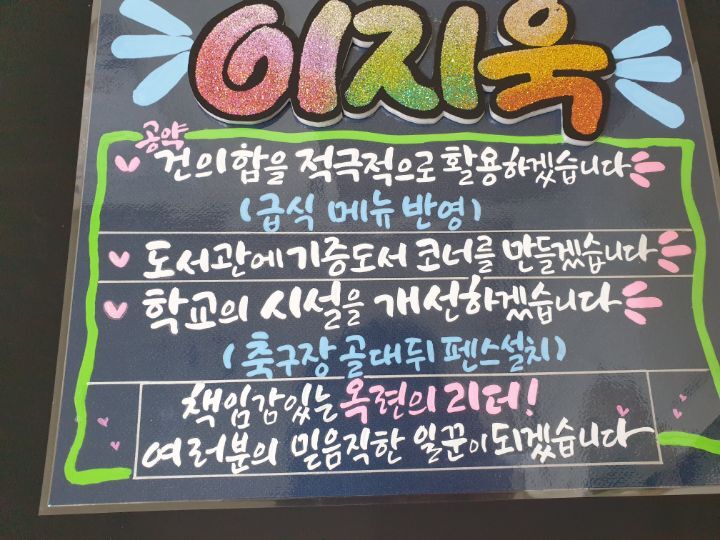 이지욱
공약
건의함을 적극적으로 활용하겠습니다
(급식 메뉴 반영)
도서관에 기증도서 코너를 만들겠습니다
학교의 시설을 개선하겠습니다
(축구장 골대 뒤 펜스설치)
책임감있는 옥련의 리더!
여러분의 믿음직한 일꾼이 되겠습니다